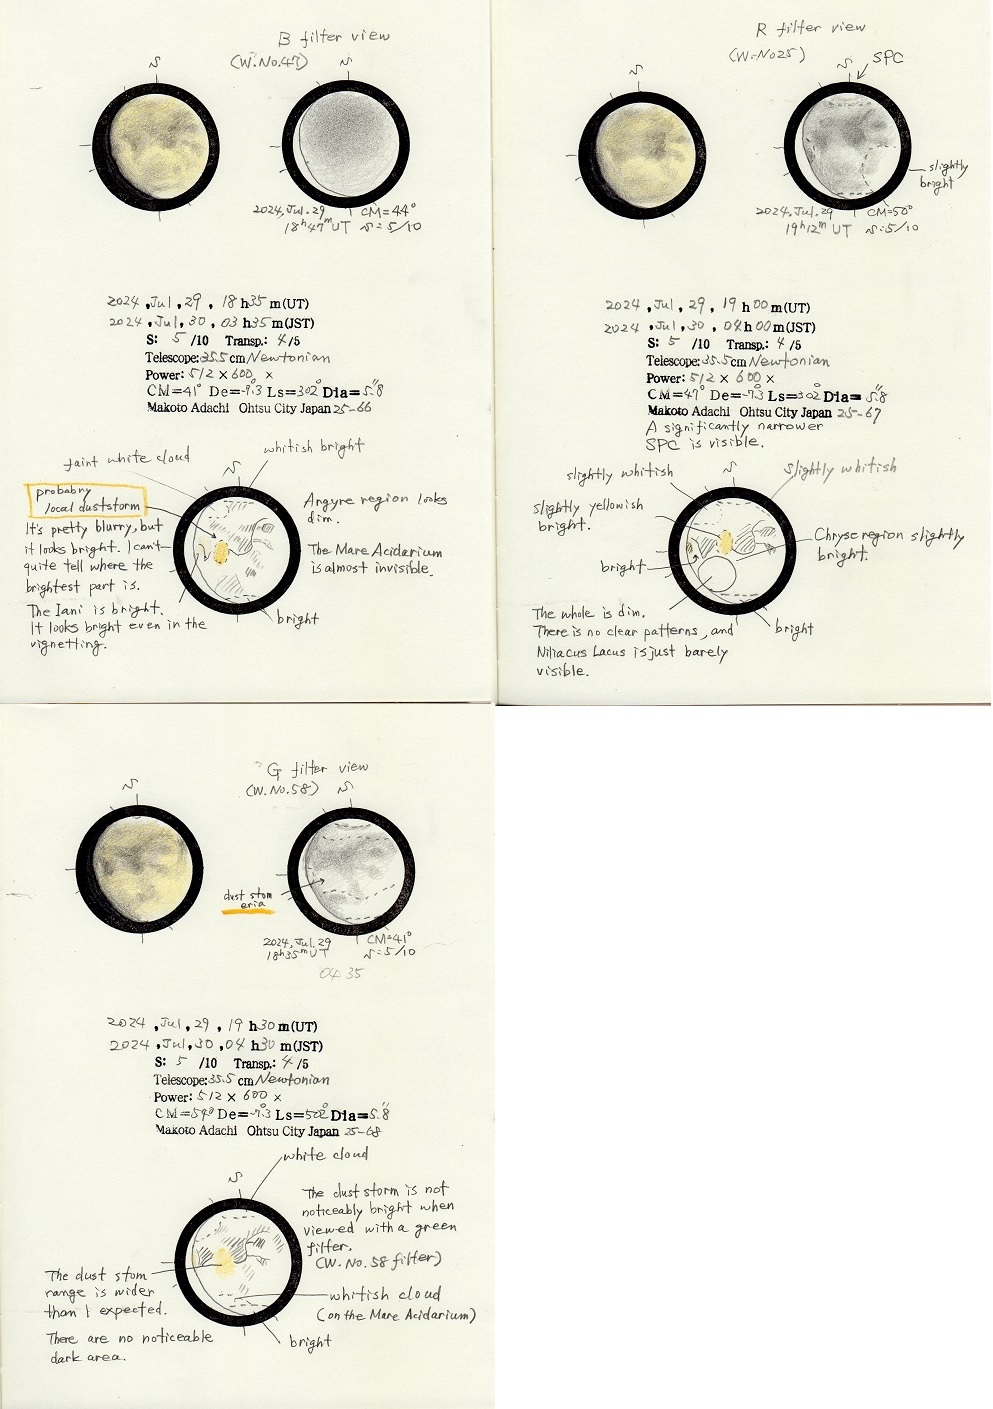 B filter view
(W.No.47)
S
S
2024, Jul. 29
18h47m UT
CM=44°
S=5/10
2024, Jul, 29, 18 h35 m(UT)
2024, Jul, 30, 03 h35 m(JST)
S: 5 /10 Transp.: 4 /5
Telescope: 35.5 cm Newtonian
Power: 512 × 600 ×
CM=41° De=-7.3° Ls=302° Dia=5.8"
Makoto Adachi Ohtsu City Japan 25-66
faint white cloud
whitish bright
S
probabry
local duststorm
It's pretty blurry, but
it looks bright. I can't
quite tell where the
brightest part is.
The Iani is bright.
It looks bright even in the
vignetting.
Argyre region looks
dim.
The Mare Acidarium
is almost invisible.
bright
R filter view
(W.No25)
S
S
SPC
slightly
bright
2024, Jul. 29
19h12m UT
CM=50°
S:5/10
2024, Jul, 29, 19 h00 m(UT)
2024, Jul, 30, 04 h00 m(JST)
S: 5 /10 Transp.: 4 /5
Telescope: 35.5 cm Newtonian
Power: 512 × 600 ×
CM=47° De=-7.3° Ls=302° Dia=5.8"
Makoto Adachi Ohtsu City Japan 25-67
A significantly narrower
SPC is visible.
slightly whitish
S
slightly whitish
slightly yellowish
bright.
Chryse region slightly
bright.
bright
The whole is dim.
There is no clear patterns, and
Niliacus Lacus is just barely
visible.
bright
G filter view
(W.No.58)
S
S
dust stom
eria
2024, Jul. 29
18h35m UT
CM=41°
S=5/10
04 35
2024, Jul, 29, 19 h30 m(UT)
2024, Jul, 30, 04 h30 m(JST)
S: 5 /10 Transp.: 4 /5
Telescope: 35.5 cm Newtonian
Power: 512 × 600 ×
CM=54° De=-7.3° Ls=502° Dia=5.8"
Makoto Adachi Ohtsu City Japan 25-68
white cloud
S
The dust storm is not
noticeably bright when
viewed with a green
filter.
(W.No.58 filter)
The dust stom
range is wider
than I expected.
There are no noticeable
dark area.
whitish cloud
(on the Mare Acidarium)
bright